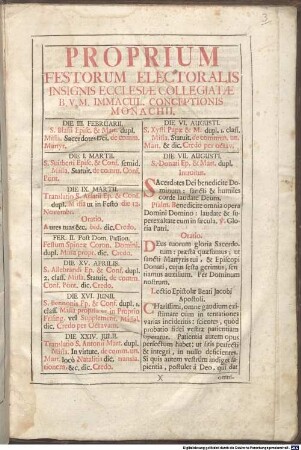 3
PROPRIUM
FESTORUM ELECTORALIS
INSIGNIS ECCLESIÆ COLLEGIATÆ
B. V. M. IMMACUL. CONCEPTIONIS
MONACHII.
DIE III. FEBRUARII.
S. Blasii Episc. & Mart. dupl.
Missa. Sacerdotes Dei. de comm.
Martyr.
DIE I. MARTII.
Missa. Statuit. de comm. Conf.
Pont.
DIE IX. MARTII.
Translatio S. Arsatii Ep. & Conf.
dupl. Missa ut in Festo die 12.
Novemb.
Oratio.
dic. Credo.
FER. II. Post Dom. Passion.
Festum Spineæ Coron. Domini.
dupl. Missa propr. dic. Credo.
DIE XV. APRILIS.
Ep. & Conf. dupl.
2. class. Missa. Statuit. de comm.
Conf. Pont. dic. Credo.
DIE XVI. JUNII.
S. Bennonis Ep. & Conf. dupl. 1.
class. Missa propria in Proprio
Frising. vel Supplement. Missal.
dic. Credo per Octavam.
DIE XXIV. JULII.
Translatio S. Antonii Mart. dupl.
Missa. In virtute. de comm. un.
Mart. loco Natalitia dic. translationem. &c. dic. Credo.
DIE VI. AUGUSTI.
S. Xysti Papæ & M. dupl. 1. class.
Missa. Statuit. de commun. un.
Mart. & dic. Credo per octav.
DIE VII. AUGUSTI.
S. Donati Ep. & Mart. dupl.
Introitus.
Sacerdotes Dei benedicite Dominum: sancti & humiles
corde laudate Deum.
Psalm. Benedicite omnia opera
Domini Domino: laudate & superexaltate eum in sæcula. ℣. Gloria Patri.
Oratio.
Deus tuorum gloria Sacerdotum: præsta quæsumus; ut
sancti Martyris tui, & Episcopi
Donati, cujus festa gerimus, sentiamus auxilium. Per Dominum
nostrum.
Lectio Epistolæ Beati Jacobi
Apostoli.
Charissimi, omne gaudium existimate cum in tentationes
varias incideritis: scientes, quod
probatio fidei vestræ patientiam
operatur. Patientia autem opus
perfectum habet: ut sitis perfecti
& integri, in nullo deficientes.
Si quis autem vestrum indiget sapientia, postulet à Deo, qui dat
X
omni-